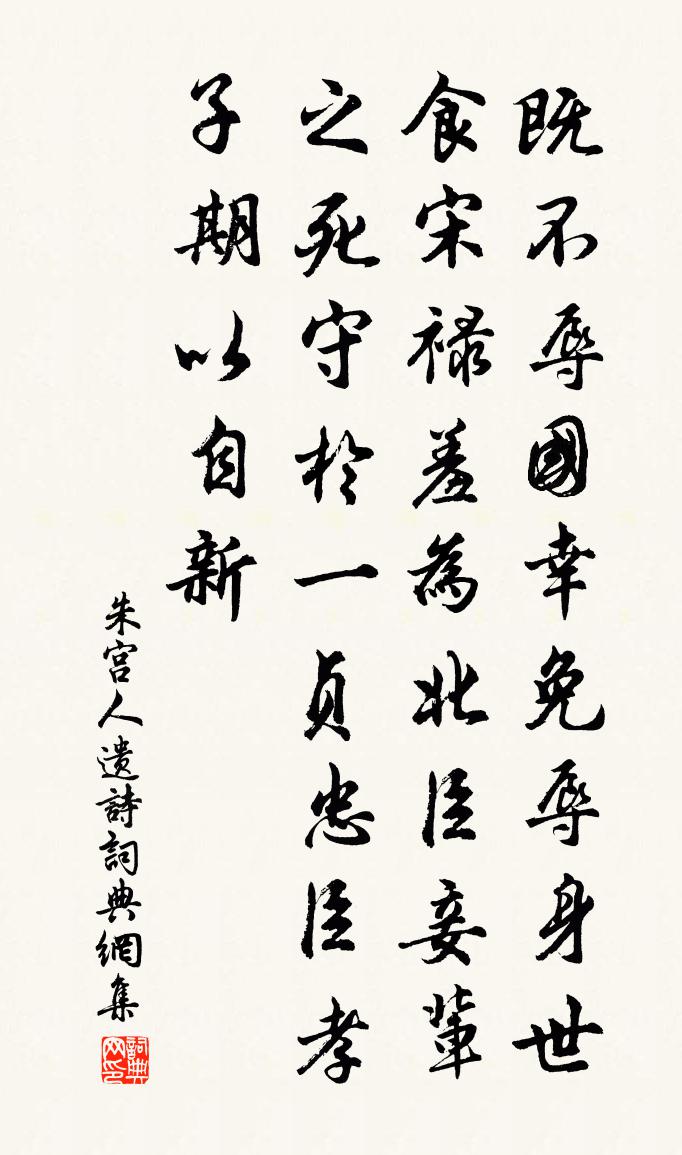 既不辱國幸免辱身世
食宋禄羞為北臣妾輩
之死守於一貞忠臣孝
子期以自新
朱宮人遺詩詞典網集
詞典网印